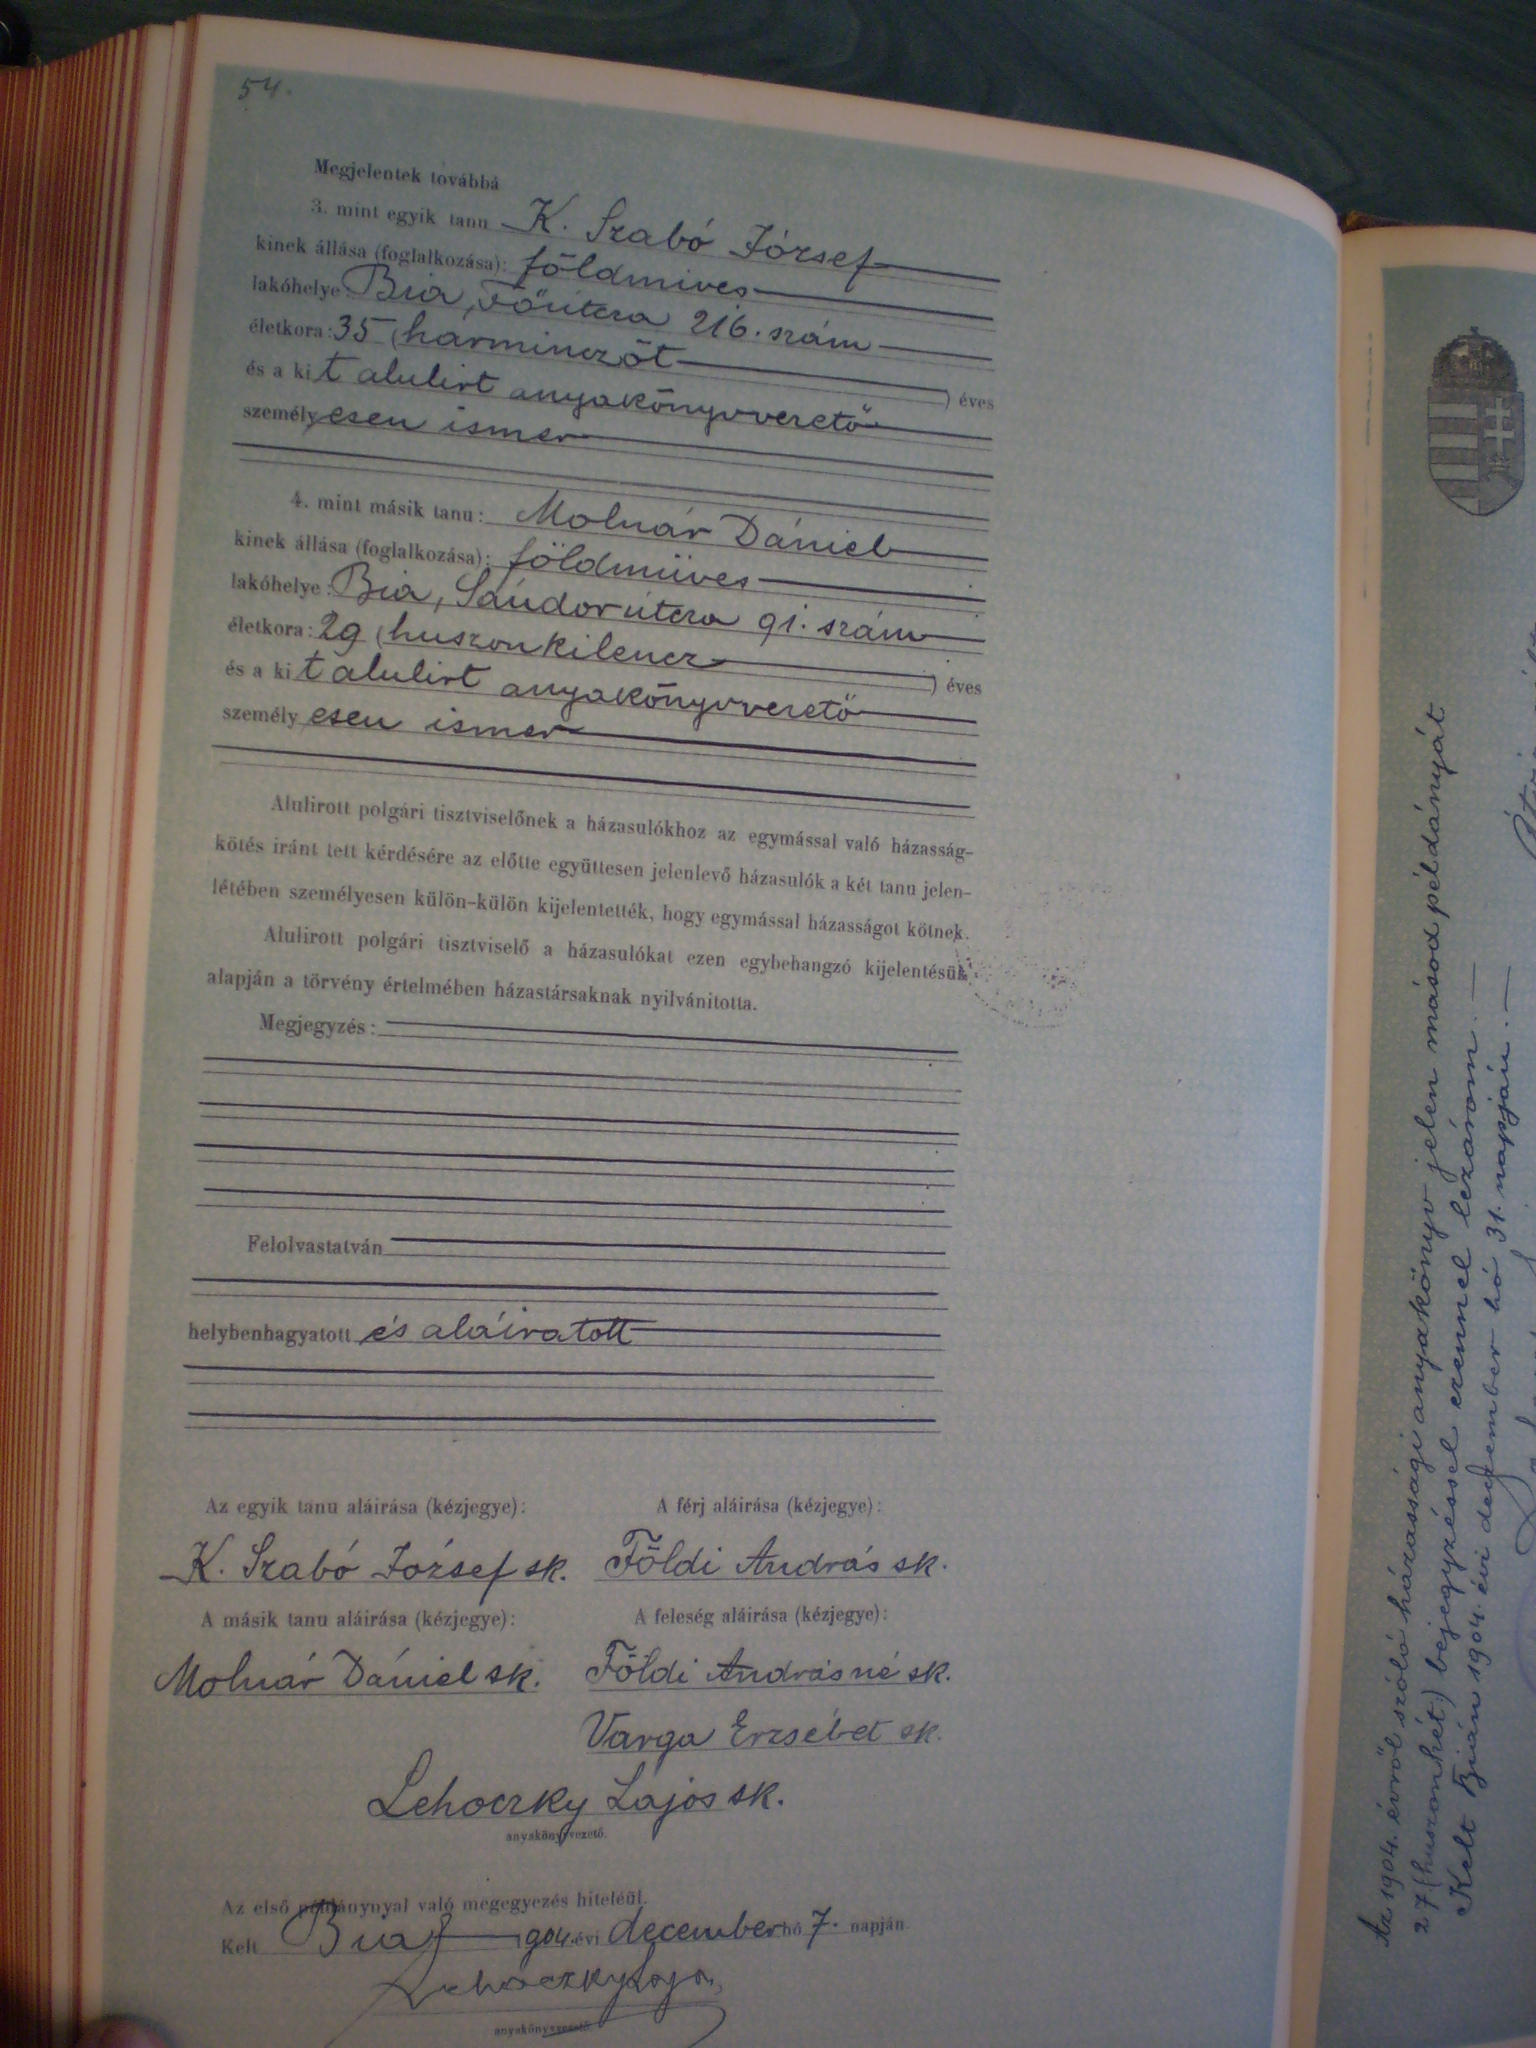 54.
Megjelentek továbbá
3. mint egyik tanu K. Szabó József
kinek állása (foglalkozása): földmives
lakóhelye: Bia, Főútcza 216. szám
életkora: 35 (harminczöt) éves
és a kit alulirt anyakönyvvezető
személyesen ismer
4. mint másik tanu: Molnár Dániel
kinek állása (foglalkozása): földmüves
lakóhelye: Bia, Sándor útcza 91. szám
életkora: 29 (huszonkilencz) éves
és a kit alulirt anyakönyvvezető
személyesen ismer
Alulirott polgári tisztviselőnek a házasulókhoz az egymással való házasság-
kötés iránt tett kérdésére az előtte együttesen jelenlevő házasulók a két tanu jelen-
létében személyesen külön-külön kijelentették, hogy egymással házasságot kötnek.
Alulirott polgári tisztviselő a házasulókat ezen egybehangzó kijelentésük
alapján a törvény értelmében házastársaknak nyilvánitotta.
Megjegyzés:
Felolvastatván
helybenhagyatott és aláiratott
Az egyik tanu aláirása (kézjegye): A férj aláirása (kézjegye):
K. Szabó József sk. Földi András sk.
A másik tanu aláirása (kézjegye): A feleség aláirása (kézjegye):
Molnár Dániel sk. Földi Andrásné sk.
Varga Erzsébet sk.
Lehoczky Lajos sk.
anyakönyvvezető.
Az első példánynyal való megegyezés hiteléül.
Kelt Bia 1904. évi december hó 7. napján
Lehoczky Lajos
anyakönyvvezető
Az 1904. évről szóló házassági anyakönyv jelen másod példányát
27 (huszonhét) bejegyzéssel ezennel lezárom. —
Kelt Bián 1904. évi deczember hó 31. napján. —